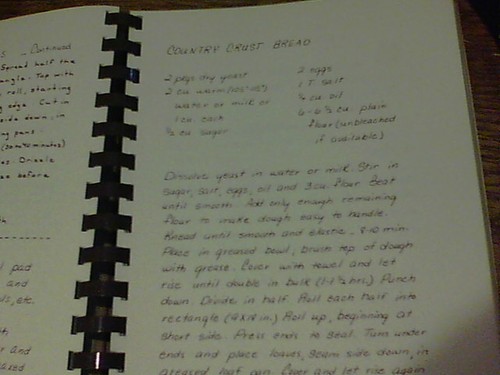 s - Continued
Spread half the
angle. Top with
roll, starting
g edge. Cut in
side down, in
ng pans.
es. Drizzle
before
pad
and
ls, etc.
th,
r and
COUNTRY CRUST BREAD
2 pkgs dry yeast
2 cu warm
water or milk or
1 cu. each
½ cu sugar
2 eggs
1 T. salt
¼ cu. oil
6-6½ cu plain
flour (unbleached
if available)
Dissolve yeast in water or milk. Stir in
sugar, salt, eggs, oil and 3 cu. flour. Beat
until smooth. Add only enough remaining
flour to make dough easy to handle.
Knead until smooth and elastic. 8-10 min.
Place in greased bowl, brush top of dough
with grease. Cover with towel and let
rise until double in bulk (1-1½ hrs.) Punch
down. Divide in half. Roll each half into
rectangle (9x18 in.) Roll up, beginning at
short side. Press ends to seal. Turn under
ends and place loaves, seam side down, in
greased loaf pan. Cover and let rise again